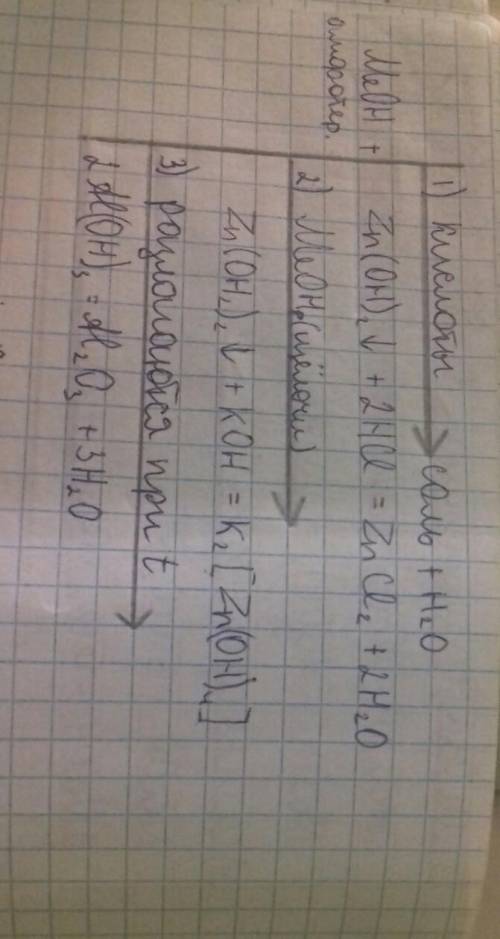 MeOH +
амфотер.
1) кислоты соль + H₂O
Zn(OH)₂↓ + 2HCl = ZnCl₂ + 2H₂O
2) MeOH (щёлочи)
Zn(OH)₂↓ + KOH = K₂[Zn(OH)₄]
3) разлагаются при t
2Al(OH)₃ = Al₂O₃ + 3H₂O